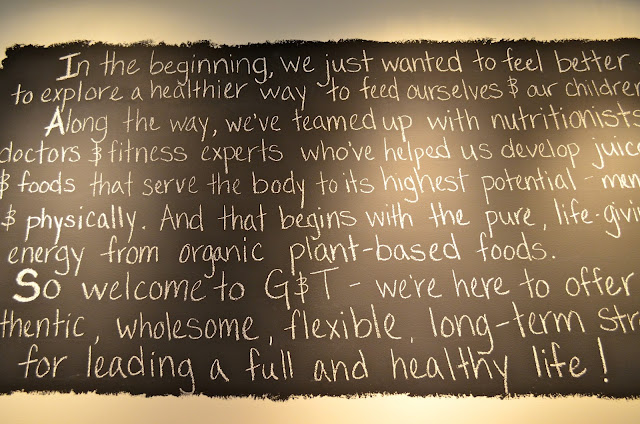 In the beginning, we just wanted to feel better -
to explore a healthier way to feed ourselves & our children
Along the way, we've teamed up with nutritionists,
doctors & fitness experts who've helped us develop juice
& foods that serve the body to its highest potential - men
& physically. And that begins with the pure, life-givin
energy from organic plant-based foods.
So welcome to G&T - we're here to offer
thentic, wholesome, flexible, long-term str
for leading a full and healthy life!